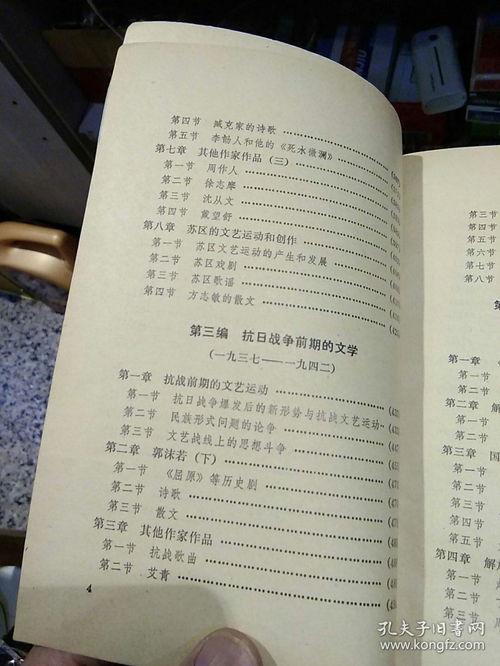 第四节 臧克家的诗歌
第五节 李劼人和他的《死水微澜》
第七章 其他作家作品(三)
第一节 周作人
第二节 徐志摩
第三节 沈从文
第四节 戴望舒
第八章 苏区的文艺运动和创作
第一节 苏区文艺运动的产生和发展
第二节 苏区戏剧
第三节 苏区歌谣
第四节 方志敏的散文
第三编 抗日战争前期的文学
(一九三七——一九四二)
第一章 抗战前期的文艺运动
第一节 抗日战争爆发后的新形势与抗战文艺运动
第二节 民族形式问题的论争
第三节 文艺战线上的思想斗争
第二章 郭沫若(下)
第一节 《屈原》等历史剧
第二节 诗歌
第三节 散文
第三章 其他作家作品
第一节 抗战歌曲
第二节 艾青
4
第三节
第四节
第五节
第六节
第七节
第八节
第一章
第一节
第二节
第二章 解
第一节
第二节
第三章 国
第一节
第二节
第三节
第四章 解放
第一节
第二节
第三节
孔夫子旧书网
www.kongfz.com